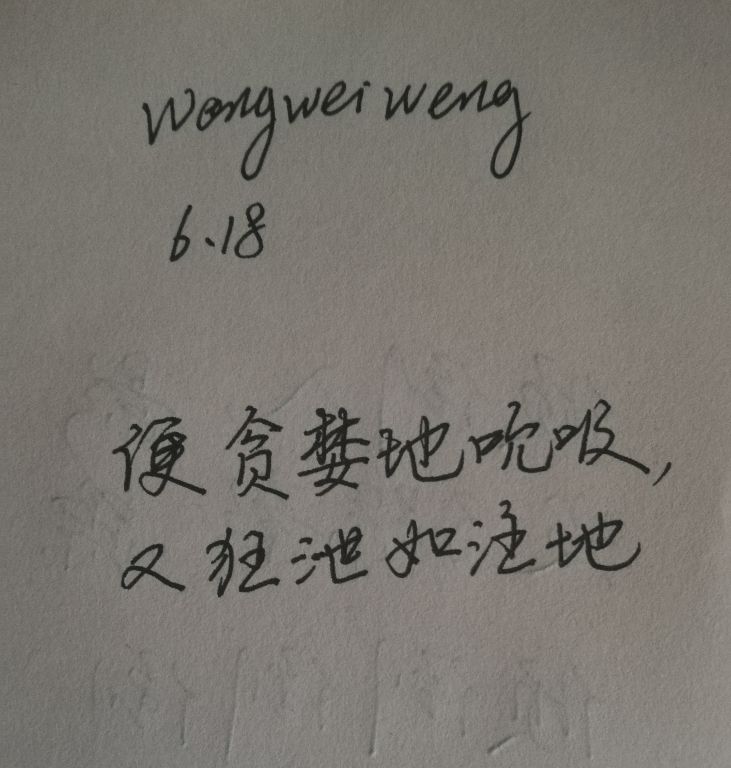 Wongweiweng
6.18
便贪婪地吮吸，
又狂泄如注地